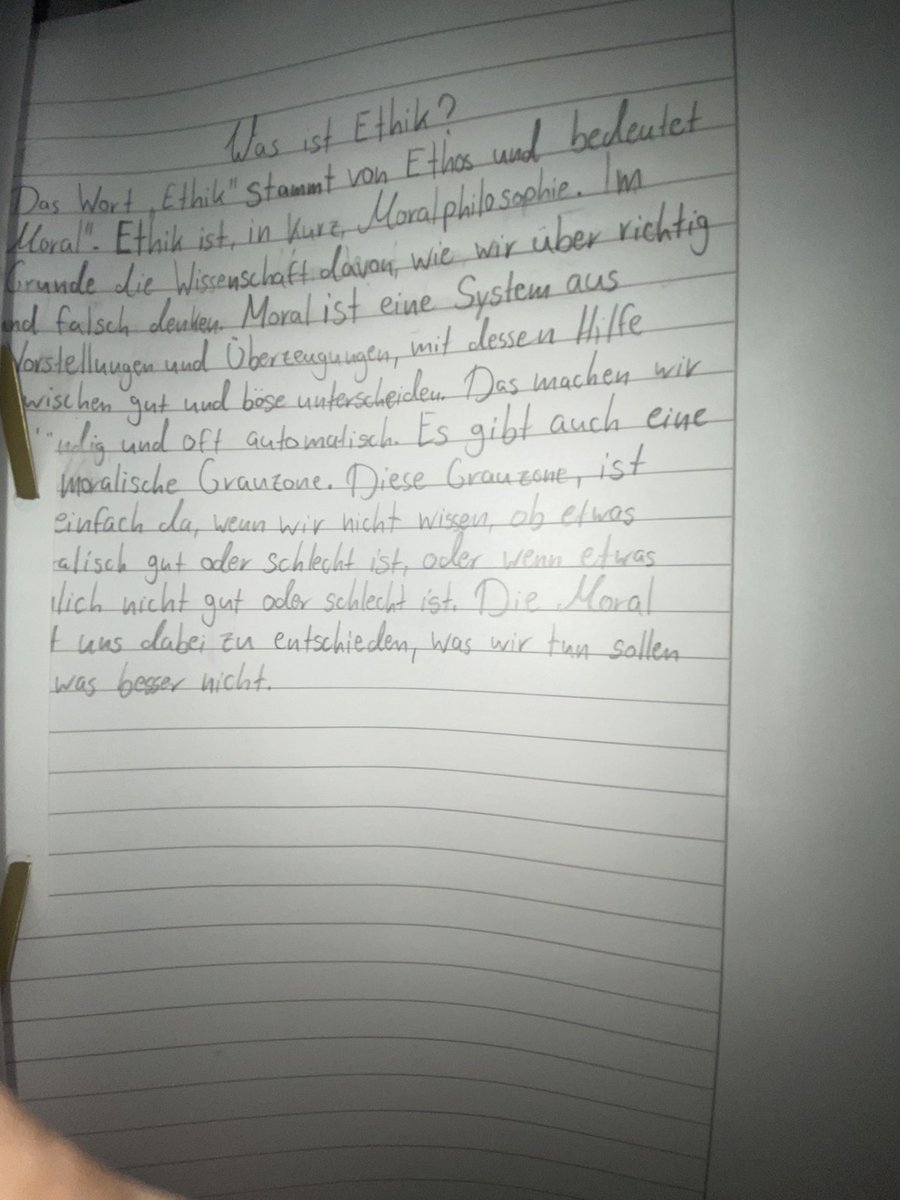 Was ist Ethik?
Das Wort „Ethik" stammt von Ethos und bedeutet
Moral". Ethik ist, in Kurz, Moralphilosophie. Im
Grunde die Wissenschaft davon, wie wir über richtig
nd falsch denken. Moral ist eine System aus
Vorstellungen und Überzeugungen, mit dessen Hilfe
wischen gut und böse unterscheiden. Das machen wir
und oft automatisch. Es gibt auch eine
moralische Grauzone. Diese Grauzone, ist
einfach da, wenn wir nicht wissen, ob etwas
alisch gut oder schlecht ist, oder wenn etwas
lich nicht gut oder schlecht ist. Die Moral
t uns dabei zu entschieden, was wir tun sollen
was besser nicht.